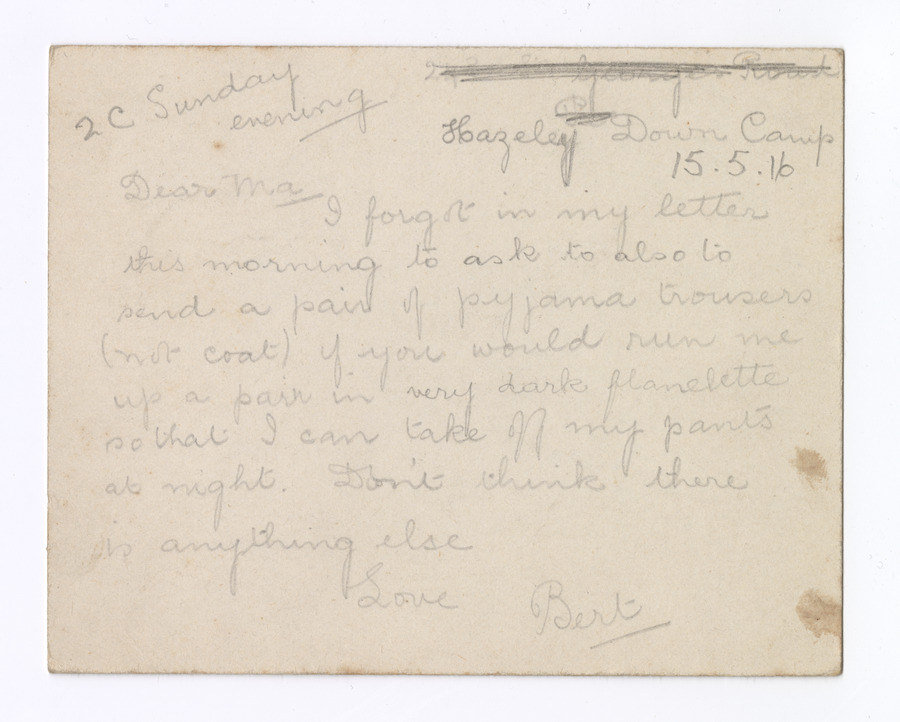 George's Road
2C Sunday
evening
Hazeley Down Camp
15.5.16
Dear Ma
I forgot in my letter
this morning to ask to also to
send a pair of pyjama trousers
(not coat) if you would run me
up a pair in very dark flanelette
so that I can take off my pants
at night. Don't think there
is anything else
Love Bert